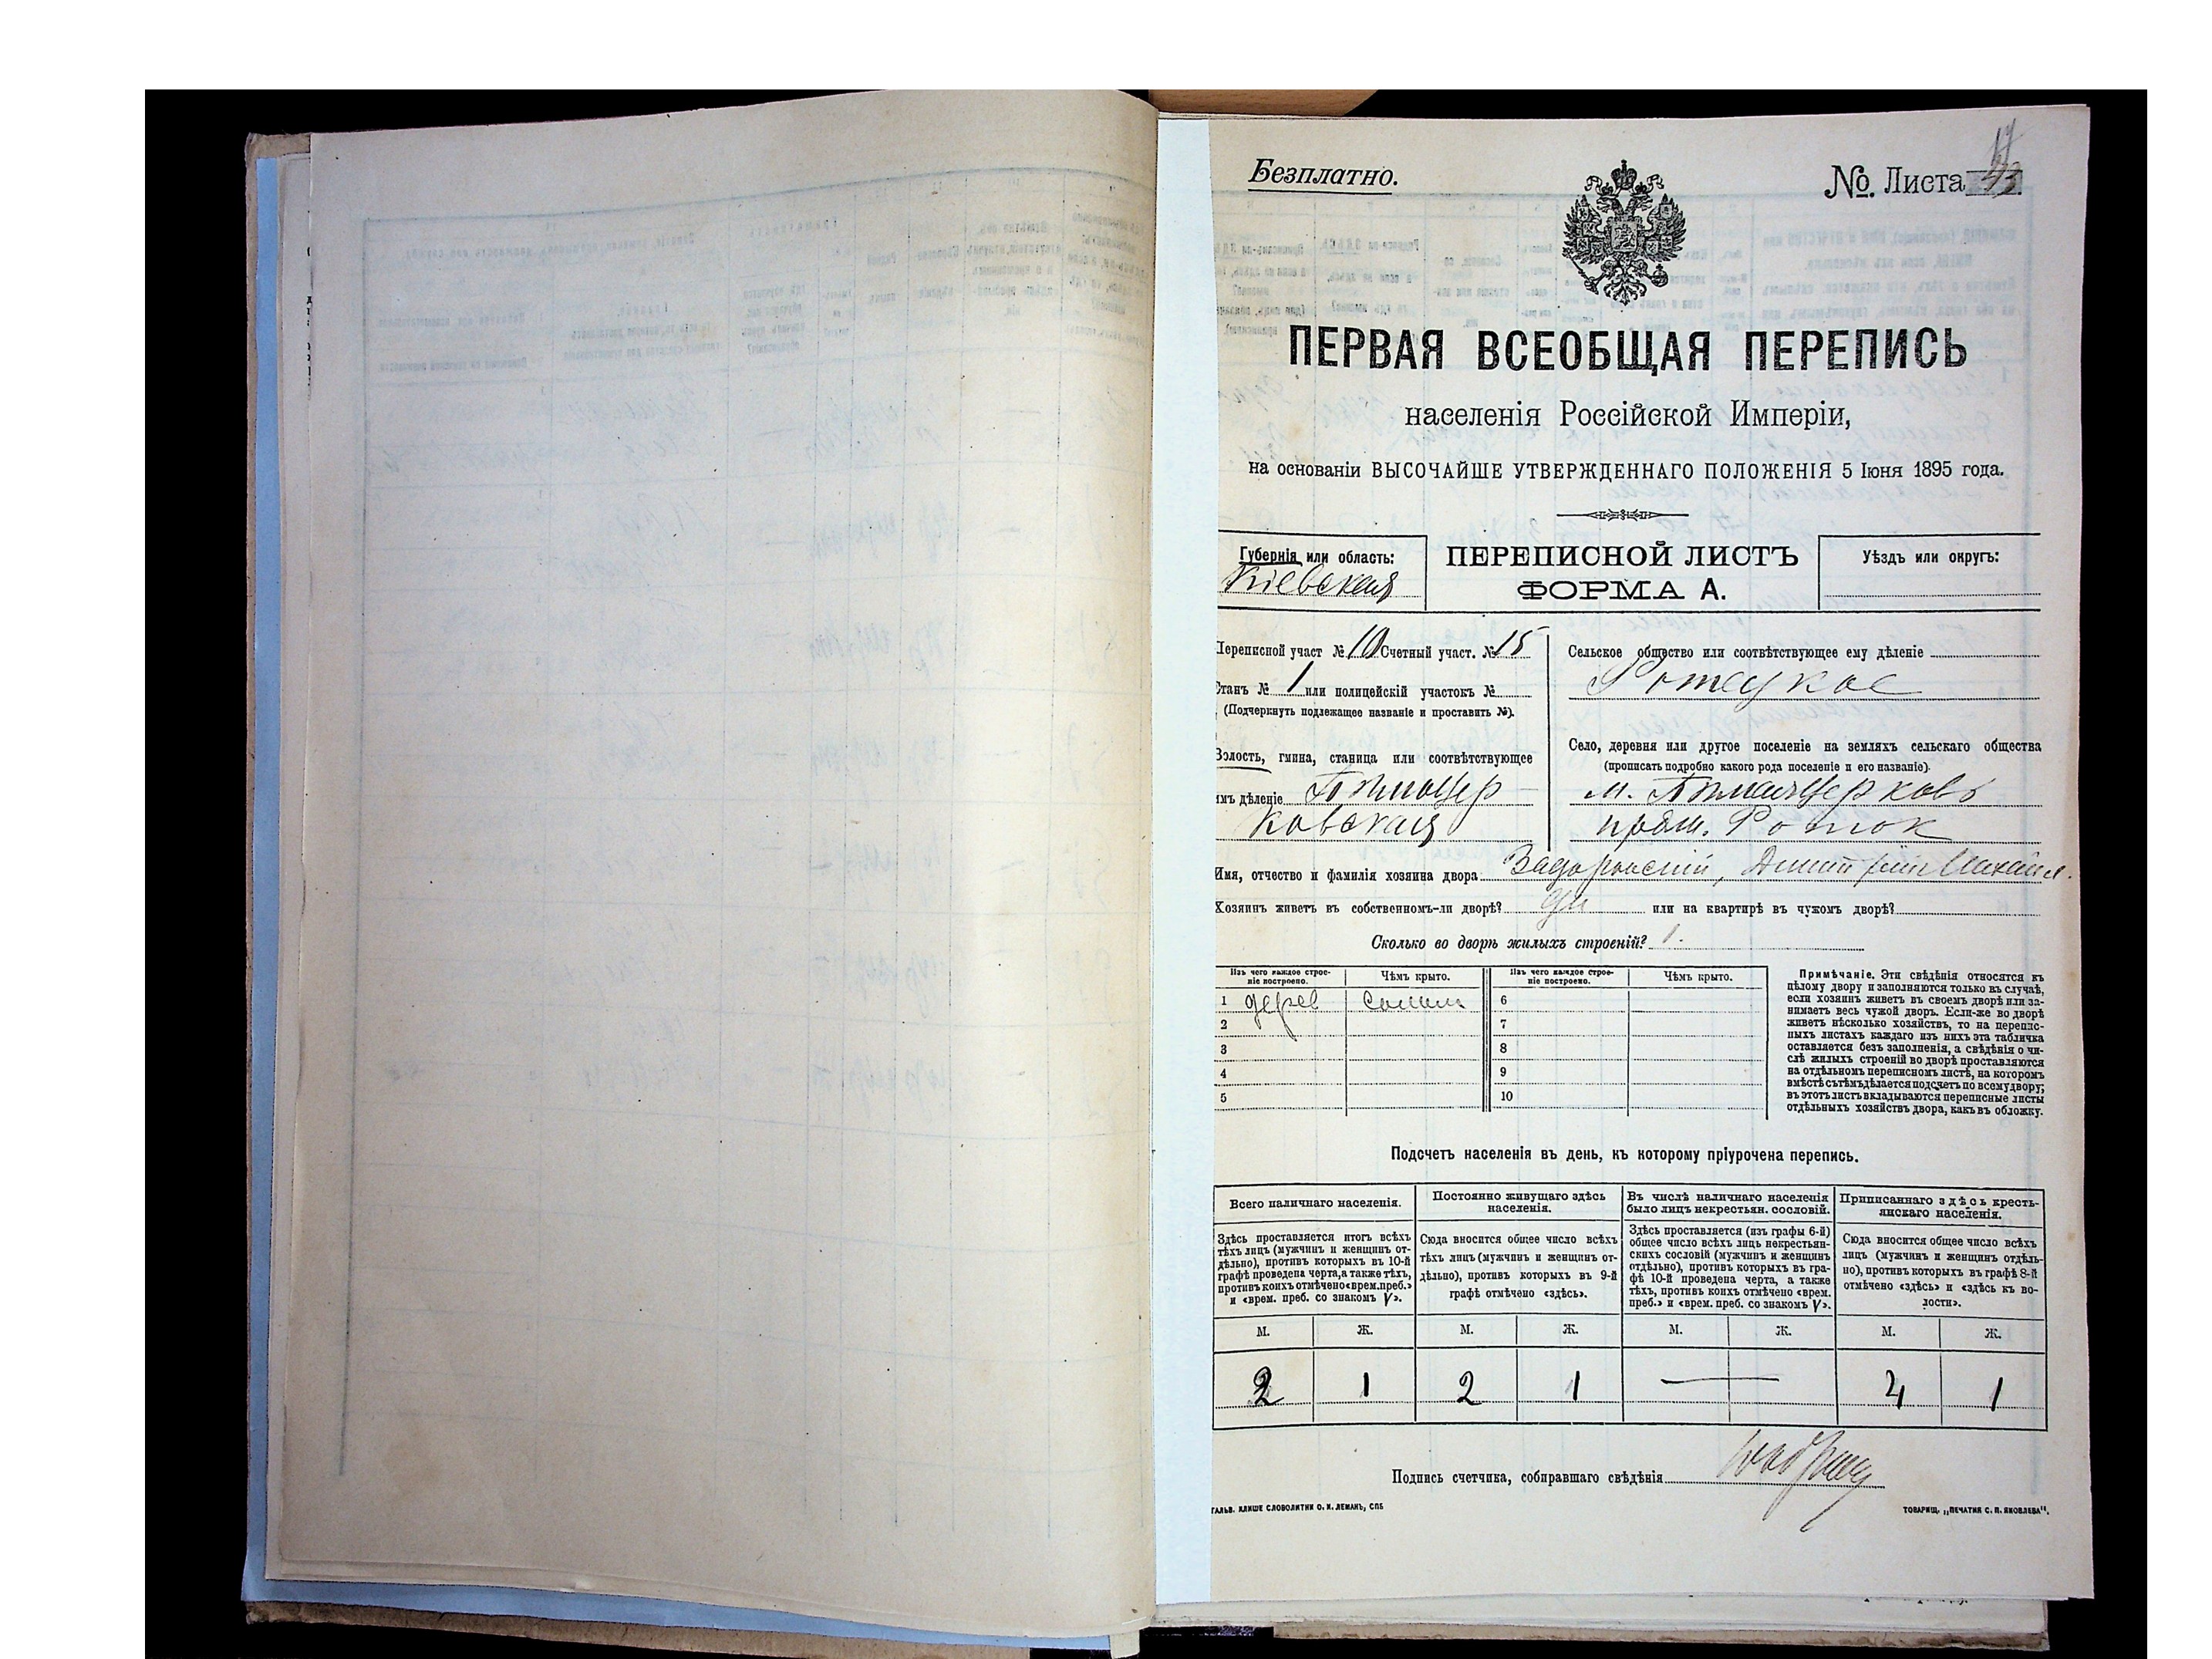 Безплатно.
№ Листа
ПЕРВАЯ ВСЕОБЩАЯ ПЕРЕПИСЬ
населенія Россійской Имперіи,
на основаніи ВЫСОЧАЙШЕ УТВЕРЖДЕННАГО ПОЛОЖЕНІЯ 5 Іюня 1895 года.
Губернія или область:
Кіевская
ПЕРЕПИСНОЙ ЛИСТЪ
ФОРМА А.
Уѣздъ или округъ:
Переписной участ № 10 Счетный участ. № 15
Станъ № 1 или полицейскій участокъ №
(Подчеркнуть подлежащее названіе и проставить №).
Волость, гмина, станица или соотвѣтствующее
имъ дѣленіе Бѣлоцер
ковская
Сельское общество или соотвѣтствующее ему дѣленіе
Ротецкое
Село, деревня или другое поселеніе на земляхъ сельскаго общества
(прописать подробно какого рода поселеніе и его названіе).
м. Бѣлая Церковь
Роток
Имя, отчество и фамилія хозяина двора
Хозяинъ живетъ въ собственномъ-ли дворѣ? да или на квартирѣ въ чужомъ дворѣ?
Сколько во дворѣ жилыхъ строеній? 1.
Изъ чего каждое строе-
ніе построено.
Чѣмъ крыто.
Изъ чего каждое строе-
ніе построено.
Чѣмъ крыто.
1 дерев солом 6
2 7
3 8
4 9
5 10
Примѣчаніе. Эти свѣдѣнія относятся къ
цѣлому двору и заполняются только въ случаѣ,
если хозяинъ живетъ въ своемъ дворѣ или за-
нимаетъ весь чужой дворъ. Если-же во дворѣ
живетъ нѣсколько хозяйствъ, то на перепис-
ныхъ листахъ каждаго изъ нихъ эта табличка
оставляется безъ заполненія, а свѣдѣнія о чи-
слѣ жилыхъ строеній во дворѣ проставляются
на отдѣльномъ переписномъ листѣ, на которомъ
вмѣстѣ съ тѣмъ дѣлается подсчетъ по всему двору;
въ этотъ листъ вкладываются переписные листы
отдѣльныхъ хозяйствъ двора, какъ въ обложку.
Подсчетъ населенія въ день, къ которому пріурочена перепись.
Всего наличнаго населенія.
Здѣсь проставляется итогъ всѣхъ
тѣхъ лицъ (мужчинъ и женщинъ от-
дѣльно), противъ которыхъ въ 10-й
графѣ проведена черта, а также тѣхъ,
противъ коихъ отмѣчено «врем. преб.»
и «врем. преб. со знакомъ V».
Постоянно живущаго здѣсь
населенія.
Сюда вносится общее число всѣхъ
тѣхъ лицъ (мужчинъ и женщинъ от-
дѣльно), противъ которыхъ въ 9-й
графѣ отмѣчено «здѣсь».
Въ числѣ наличнаго населенія
было лицъ некрестьян. сословій.
Здѣсь проставляется (изъ графы 6-й)
общее число всѣхъ лицъ некрестьян-
скихъ сословій (мужчинъ и женщинъ
отдѣльно), противъ которыхъ въ гра-
фѣ 10-й проведена черта, а также
тѣхъ, противъ коихъ отмѣчено «врем.
преб.» и «врем. преб. со знакомъ V».
Приписаннаго здѣсь кресть-
янскаго населенія.
Сюда вносится общее число всѣхъ
лицъ (мужчинъ и женщинъ отдѣль-
но), противъ которыхъ въ графѣ 8-й
отмѣчено «здѣсь» и «здѣсь къ во-
лости».
М. Ж. М. Ж. М. Ж. М. Ж.
2 1 2 1 — 4 1
Подпись счетчика, собиравшаго свѣдѣнія
ГАЛЬВ. КЛИШЕ СЛОВОЛИТНИ О. И. ЛЕМАНЪ, СПБ
ТОВАРИЩ. „ПЕЧАТНЯ С. П. ЯКОВЛЕВА“.